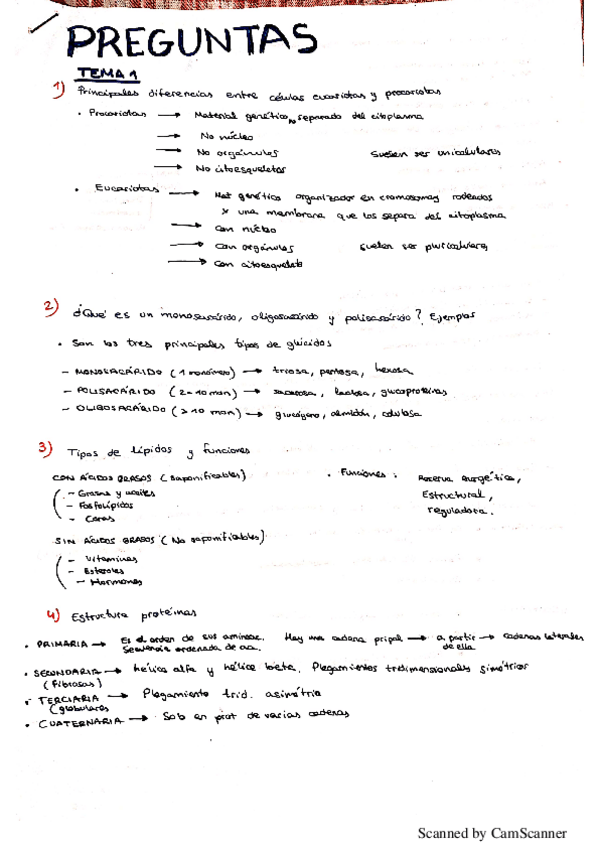 PREGUNTAS
TEMA 1
1) Principales diferencias entre células eucariotas y procariotas
· Procariotas → Material genético no separado del citoplasma
→ No núcleo
→ No orgánulos suelen ser unicelulares
→ No citoesqueletos
· Eucariotas → Mat genético organizador en cromosomas y rodeados
x una membrana que los separa del citoplasma
→ con núcleo
→ con orgánulos suelen ser pluricelulares
→ con citoesqueleto
2) ¿Qué es un monosacárido, oligosacárido y polisacárido? Ejemplos
· Son los tres principales tipos de glúcidos
- MONOSACÁRIDO (1 monómero) → triosa, pentosa, hexosa
- POLISACÁRIDO (2-10 mon) → sacarosa, lactosa, glucoproteínas
- OLIGOSACÁRIDO (>10 mon) → glucógeno, almidón, celulosa
3) Tipos de lípidos y funciones
CON ÁCIDOS GRASOS (saponificables) · Funciones: Reserva energética,
- Grasas y aceites Estructural,
- Fosfolípidos reguladora.
- Ceras
SIN ÁCIDOS GRASOS (No saponificables)
- Vitaminas
- Esteroles
- Hormonas
4) Estructura proteínas
· PRIMARIA → Es el orden de sus aminoac. Hay una cadena pripal → a partir → cadenas laterales
Secuencia ordenada de aa. de ella
· SECUNDARIA → hélice alfa y hélice beta. Plegamientos tridimensionales simétricos
(fibrosas)
· TERCIARIA → Plegamiento trid. asimétrico
(globulares
· CUATERNARIA → Solo en prot de varias cadenas
Scanned by CamScanner